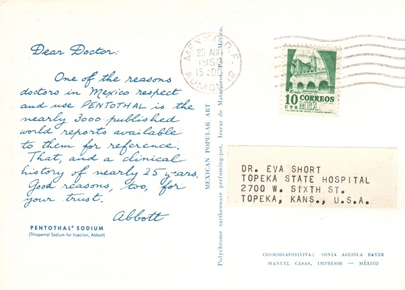 Dear Doctor:
One of the reasons
doctors in Mexico respect
and use PENTOTHAL is the
nearly 3000 published
world reports available
to them for reference.
That, and a clinical
history of nearly 25 years.
Good reasons, too, for
your trust.
Abbott
PENTOTHAL® SODIUM
(Thiopental Sodium for Injection, Abbott)
MEXICAN POPULAR ART
Polychrome earthenware perfuming-pot.
MEXICO
10 CORREOS
CTS
DR. EVA SHORT
TOPEKA STATE HOSPITAL
2700 W. SIXTH ST.
TOPEKA, KANS., U.S.A.
CROMOEXPOSITIVA: SONIA ARREOLA BAYER
MANUEL CASAS, IMPRESOR — MÉXICO